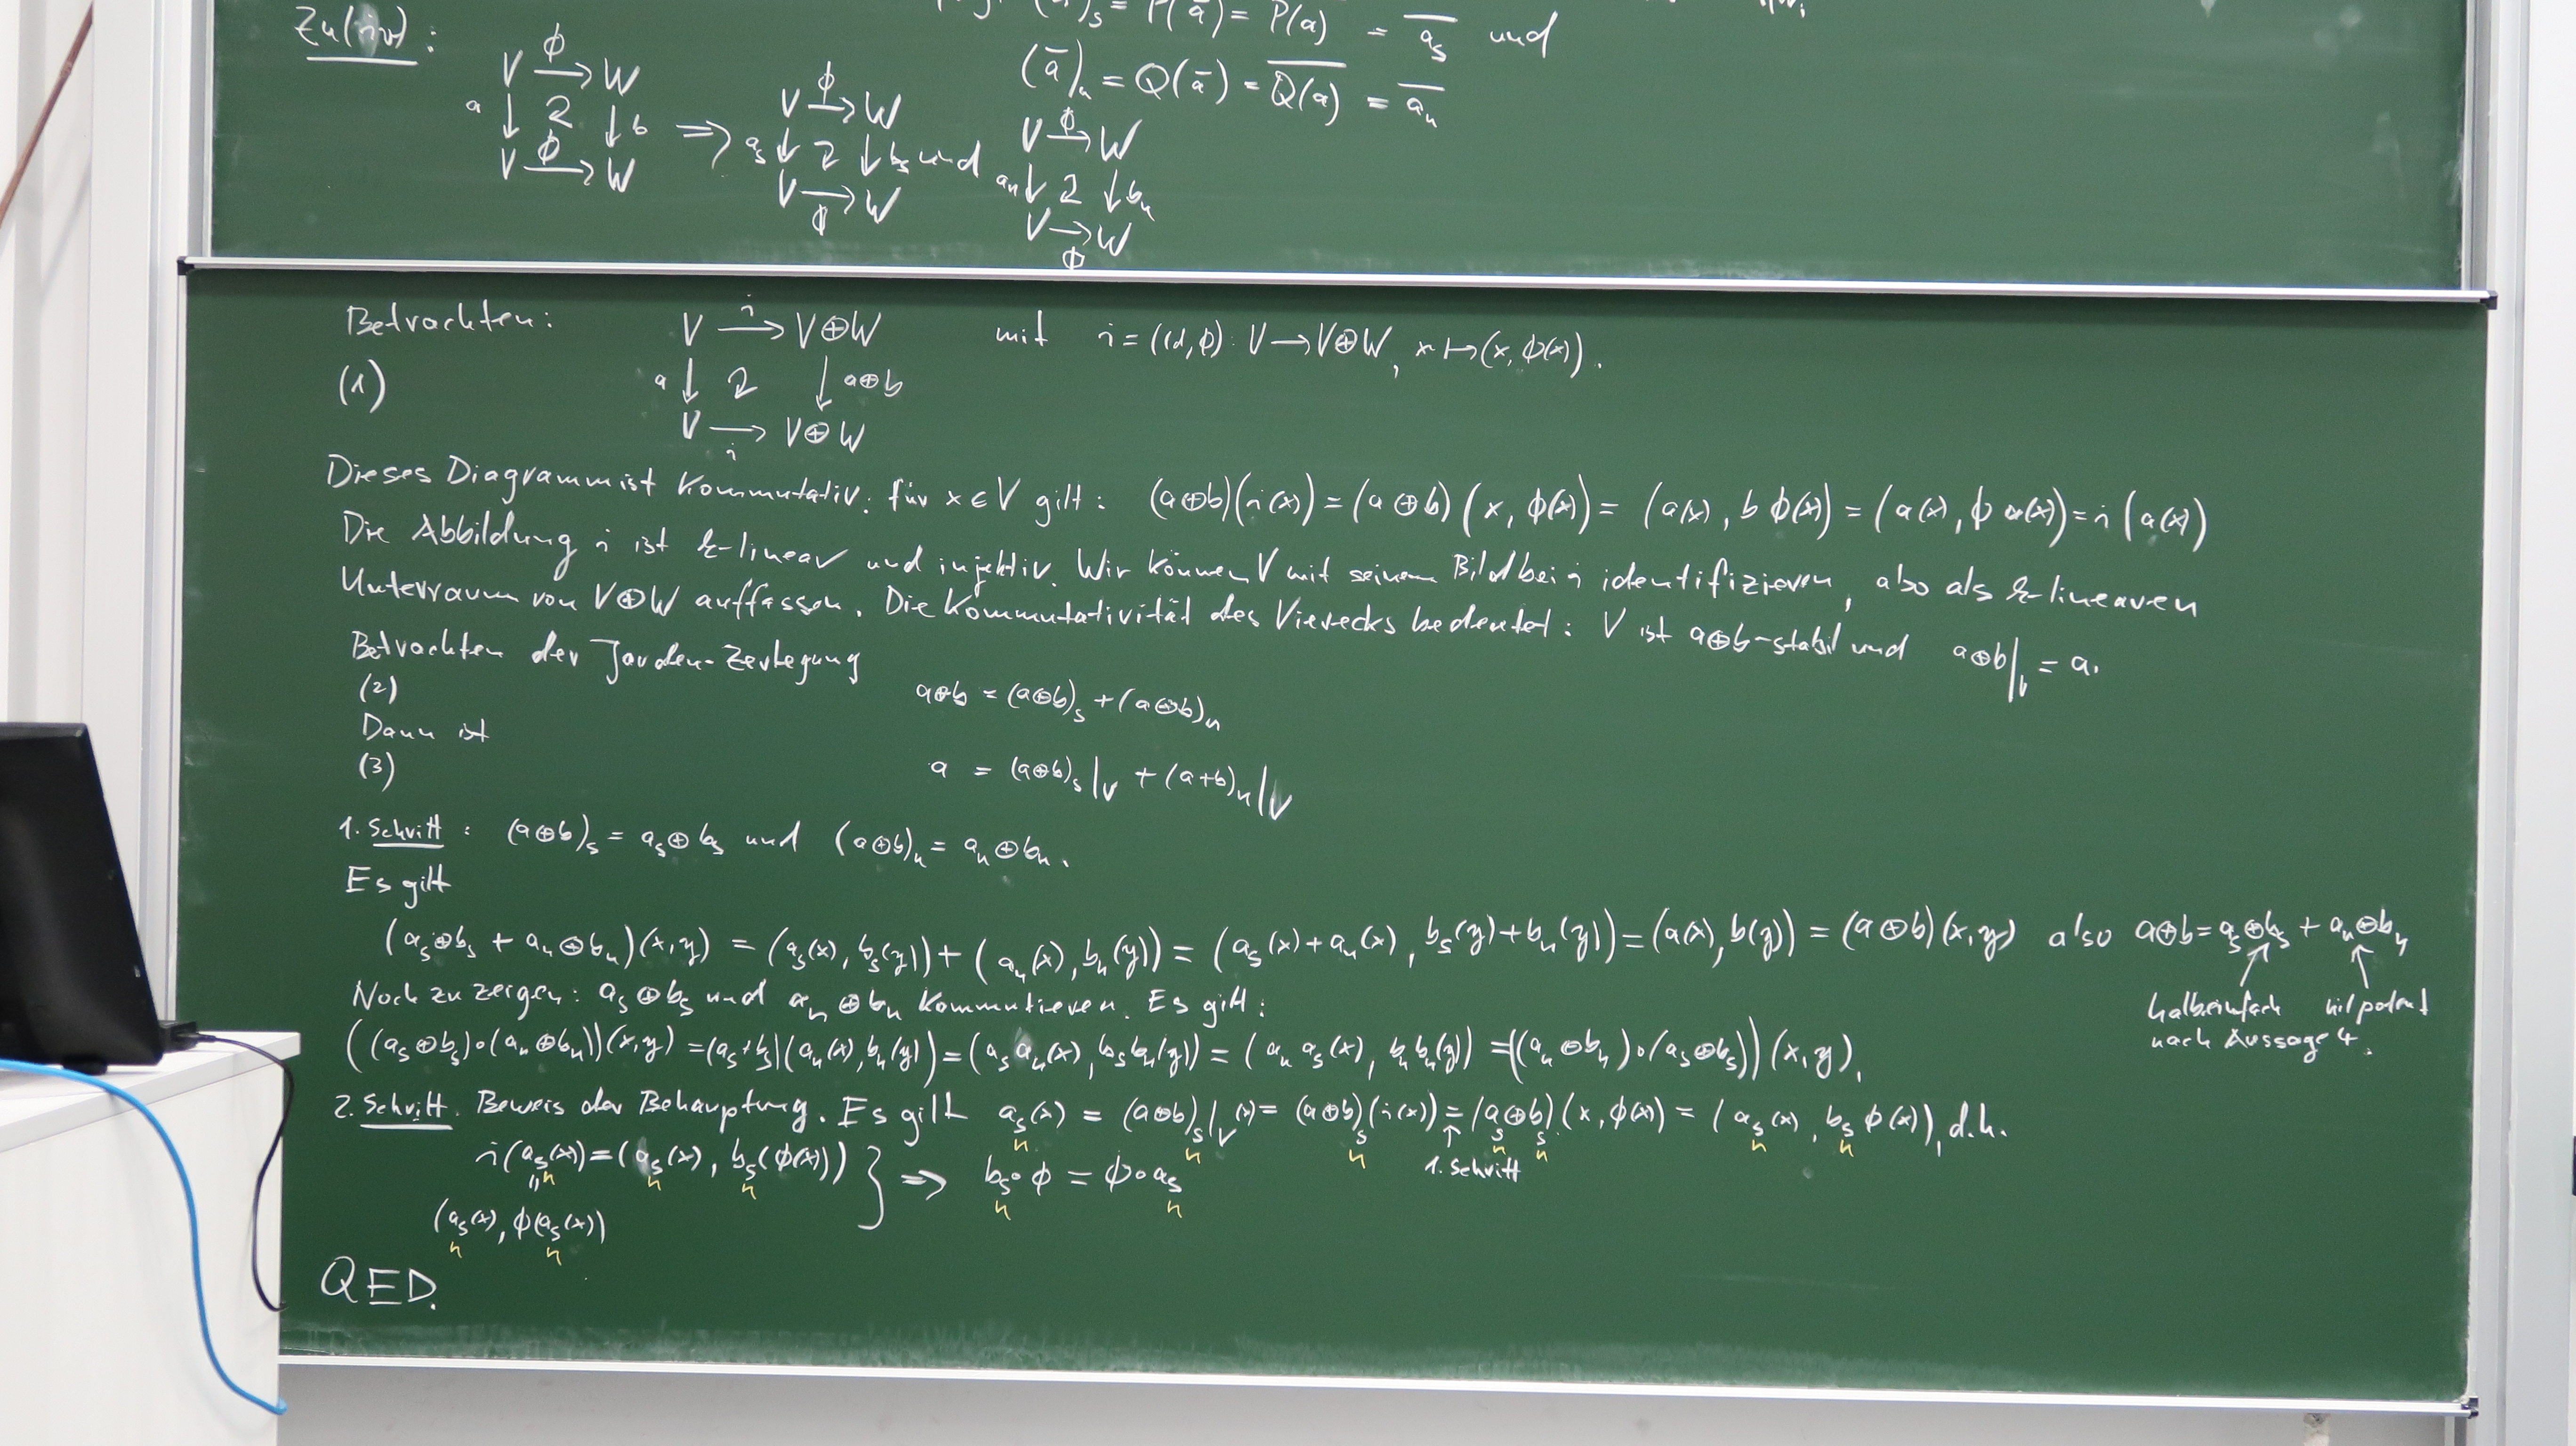 Zu (iv):
= P(ā) = P(a) = a_s und
(ā)_n = Q(ā) = Q(a) = a_n
V ϕ→ W
a ↓ 2 ↓ b ⇒
V ϕ→ W
V ϕ→ W
a_s ↓ 2 ↓ b_s und
V →ϕ W
V ϕ→ W
a_n ↓ 2 ↓ b_n
V →ϕ W
Betrachten: V i→ V⊕W mit i = (id, ϕ): V → V⊕W, x ↦ (x, ϕ(x)).
(1) a ↓ 2 ↓ a⊕b
V →i V⊕W
Dieses Diagramm ist kommutativ: für x ∈ V gilt: (a⊕b)(i(x)) = (a⊕b)(x, ϕ(x)) = (a(x), b ϕ(x)) = (a(x), ϕ a(x)) = i(a(x))
Die Abbildung i ist k-linear und injektiv. Wir können V mit seinem Bild bei i identifizieren, also als k-linearen
Unterraum von V⊕W auffassen. Die Kommutativität des Vierecks bedeutet: V ist a⊕b-stabil und a⊕b|_V = a.
Betrachten der Jordan-Zerlegung
(2) a⊕b = (a⊕b)_s + (a⊕b)_n
Dann ist
(3) a = (a⊕b)_s|_V + (a+b)_n|_V
1. Schritt: (a⊕b)_s = a_s⊕b_s und (a⊕b)_n = a_n⊕b_n.
Es gilt
(a_s⊕b_s + a_n⊕b_n)(x,y) = (a_s(x), b_s(y)) + (a_n(x), b_n(y)) = (a_s(x)+a_n(x), b_s(y)+b_n(y)) = (a(x), b(y)) = (a⊕b)(x,y) also a⊕b = a_s⊕b_s + a_n⊕b_n
Noch zu zeigen: a_s⊕b_s und a_n⊕b_n kommutieren. Es gilt:
halbeinfach nilpotent
nach Aussage 4.
((a_s⊕b_s)∘(a_n⊕b_n))(x,y) = (a_s+b_s)(a_n(x), b_n(y)) = (a_s a_n(x), b_s b_n(y)) = (a_n a_s(x), b_n b_n(y)) = ((a_n⊕b_n)∘(a_s⊕b_s))(x,y).
2. Schritt. Beweis der Behauptung. Es gilt a_s(x) = (a⊕b)_s|_V(x) = (a⊕b)_s(i(x)) = (a_s⊕b_s)(x, ϕ(x)) = (a_s(x), b_s ϕ(x)), d.h.
n n n ↑ n n n n
1. Schritt
i(a_s(x)) = (a_s(x), b_s(ϕ(x))) } ⇒ b_s∘ϕ = ϕ∘a_s
" n n n n n
(a_s(x), ϕ(a_s(x))
n n
QED.